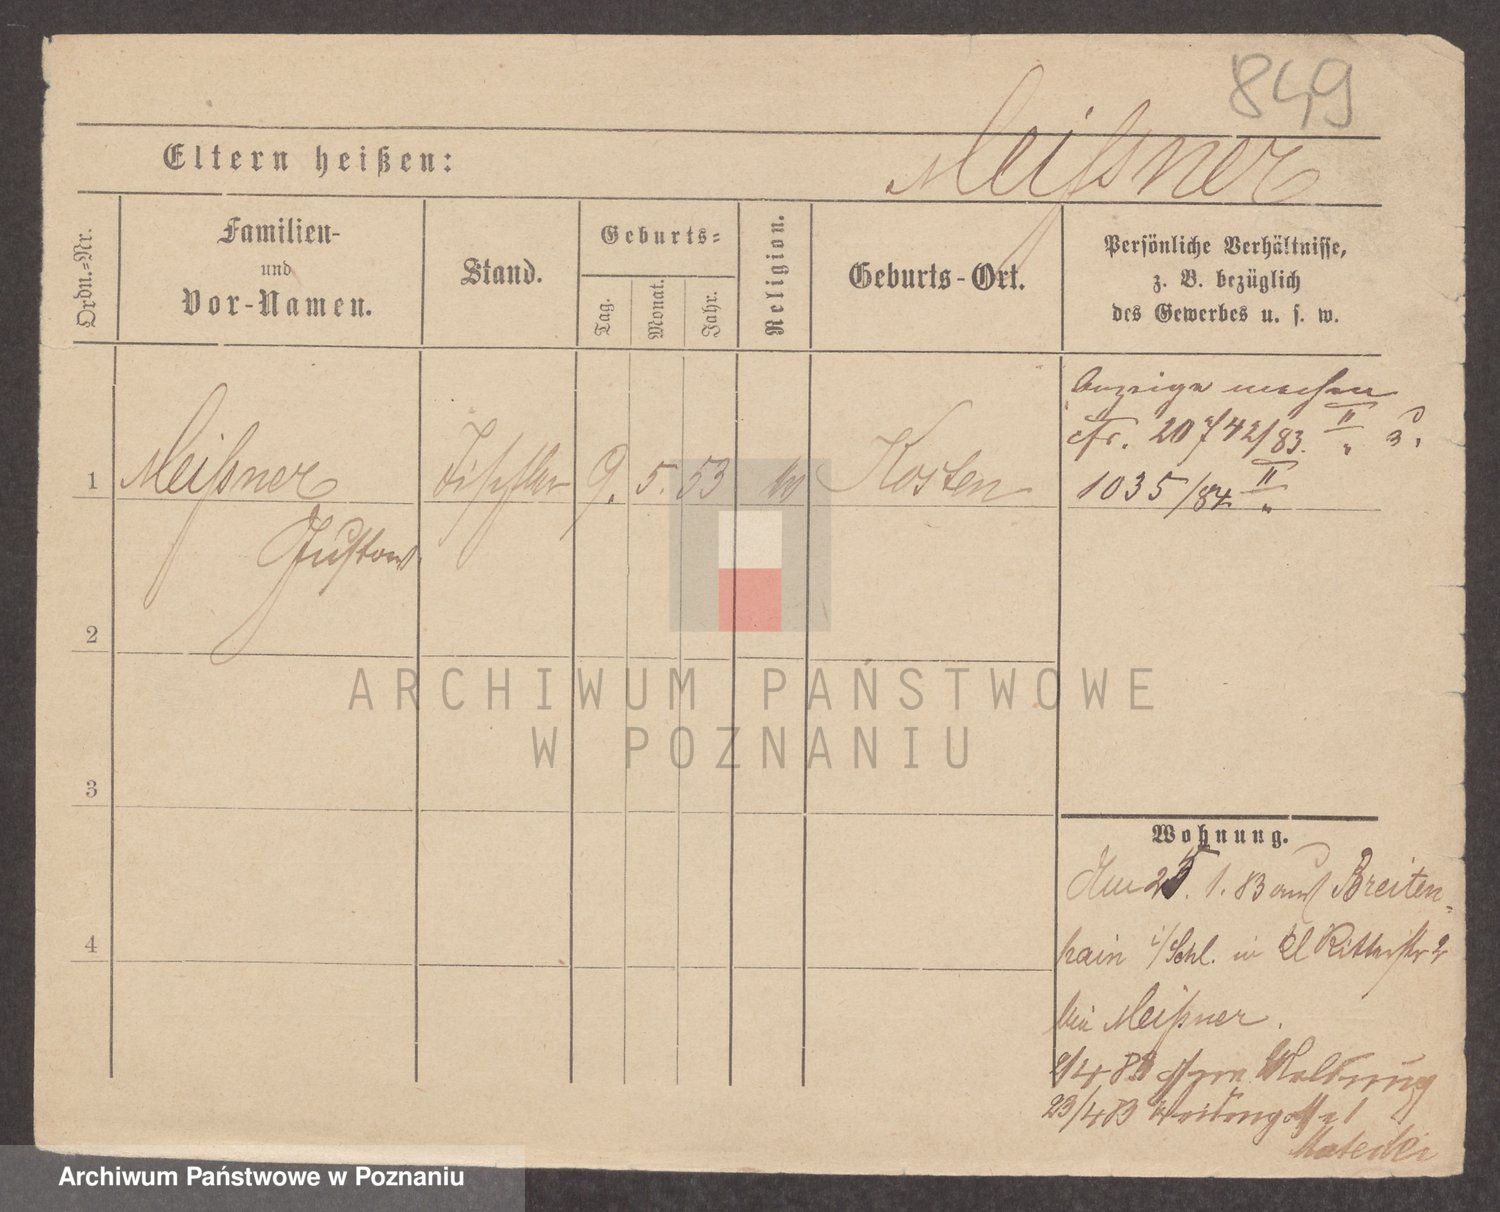 849
Meißner
Eltern heißen:
Ordn.-Nr.
Familien-
und
Vor-Namen.
Stand.
Geburts-
Tag.
Monat.
Jahr.
Religion.
Geburts-Ort.
Persönliche Verhältnisse,
z. B. bezüglich
des Gewerbes u. s. w.
1 Meißner Tischler 9. 5. 53 Kosten
Gustav
Anzeige machen
cfr. 20742/83. II
1035/84 II
2
3
4
Wohnung.
Am 25. 1. 83 aus Breiten-
hain i/Schl. in Ritterstr 2
bei Meißner.
2/4 83 ohne Meldung
23/4 83
ARCHIWUM PAŃSTWOWE
W POZNANIU
Archiwum Państwowe w Poznaniu